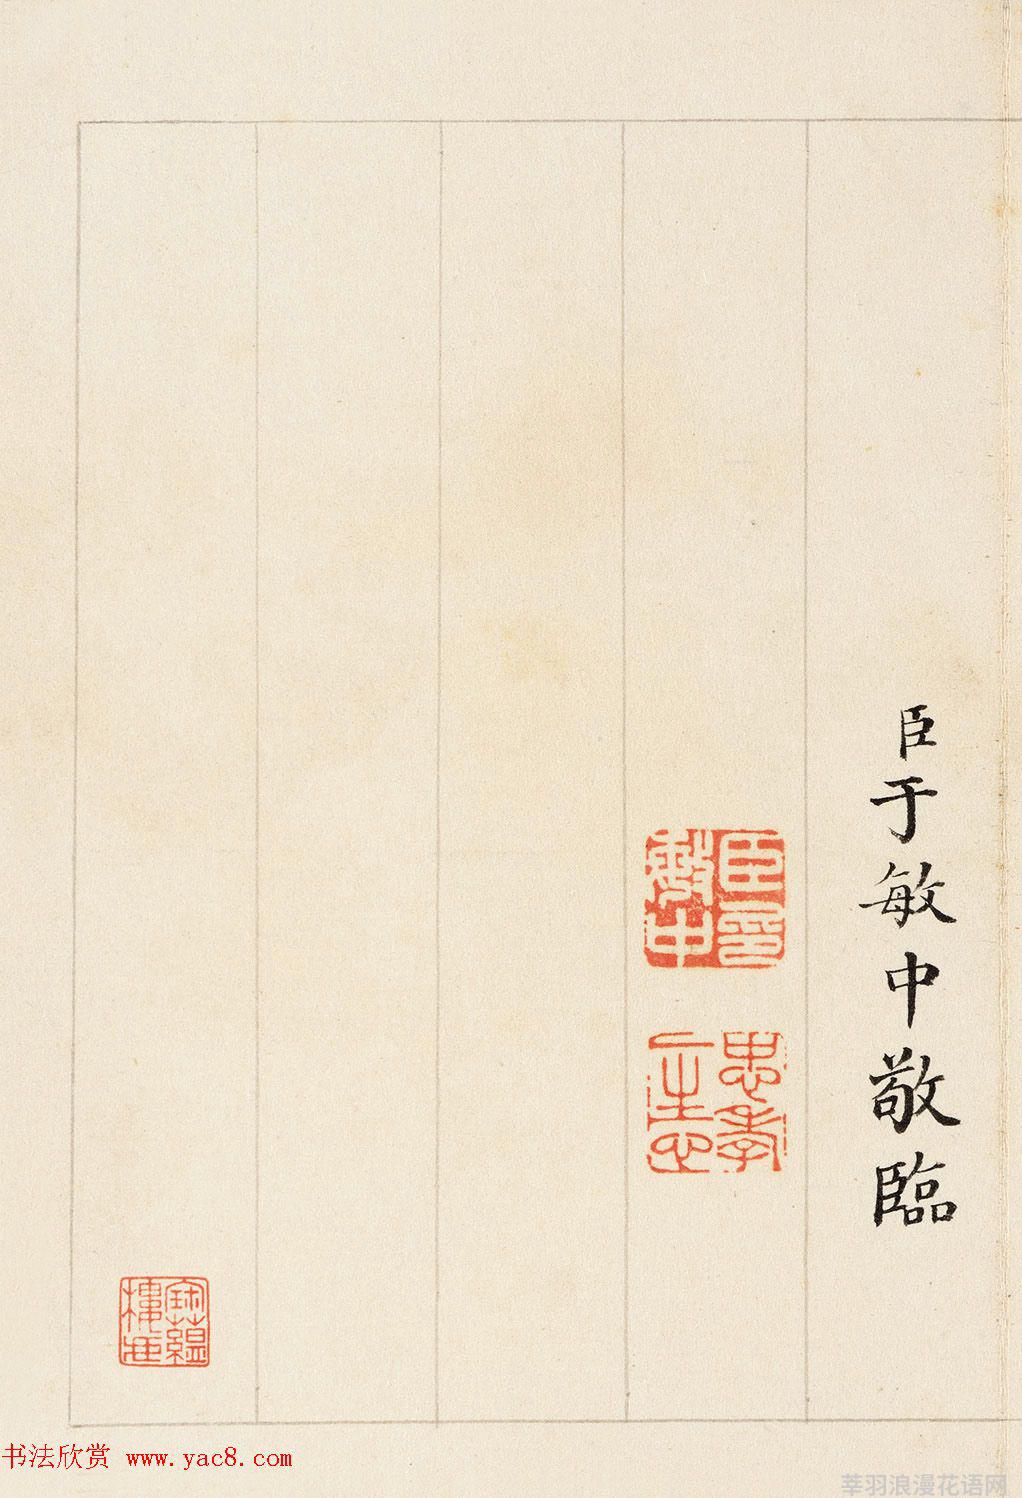 臣于敏中敬臨
臣于敏中
忠孝一生心
寶蘊樓
书法欣赏 www.yac8.com
莘羽浪漫花语网